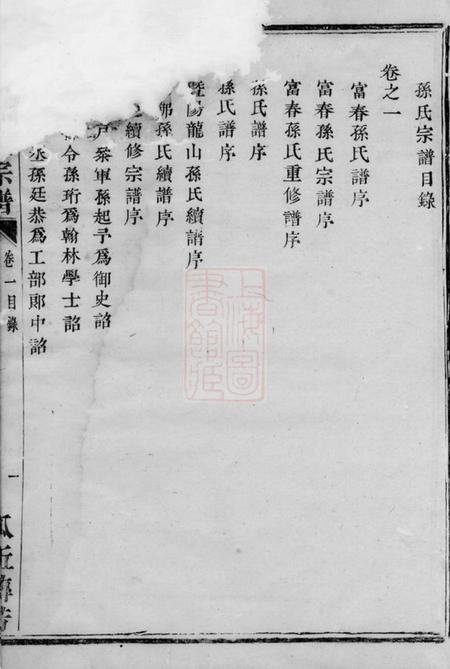 孫氏宗譜目錄
卷之一
富春孫氏譜序
富春孫氏宗譜序
富春孫氏重修譜序
孫氏譜序
孫氏譜序
暨陽龍山孫氏續譜序
孫氏續譜序
續修宗譜序
戶叅軍孫起予爲御史詔
令孫珩爲翰林學士詔
丞孫廷恭爲工部郎中詔
宗譜
卷一目錄
一
上海圖書館藏